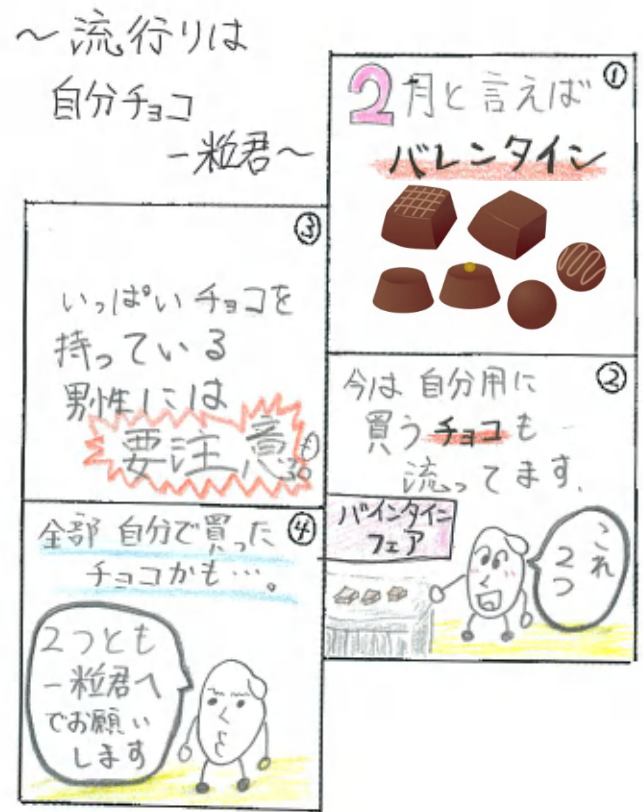 ～流行りは
自分チョコ
一粒君～
①
2月と言えば
バレンタイン
②
今は自分用に
買うチョコも
流ってます。
バインタイン
フェア
これ
2つ
③
いっぱいチョコを
持っている
男性には
要注意
④
全部自分で買った
チョコかも…。
2つとも
一粒君へ
でお願い
します